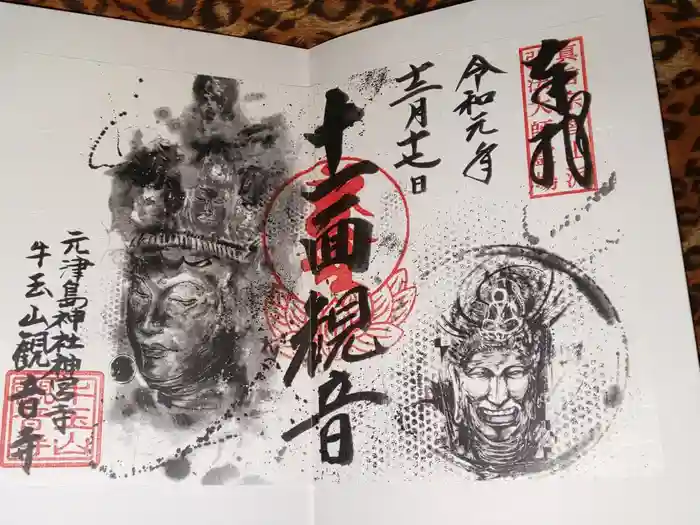 奉拝
令和元年
十二月十七日
十一面観音
元津島神社神宮寺
牛玉山観音寺